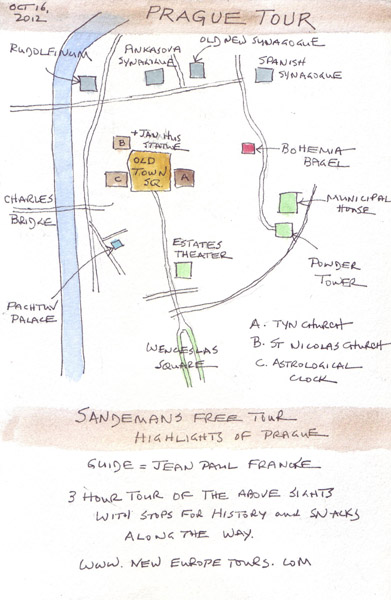 OCT 16, 2012
PRAGUE TOUR
RUDOLFINUM
PINKASOVA SYNAGOGUE
OLD NEW SYNAGOGUE
SPANISH SYNAGOGUE
B
+ JAN HUS STATUE
OLD TOWN SQ.
C
A
BOHEMIA BAGEL
CHARLES BRIDGE
MUNICIPAL HOUSE
ESTATES THEATER
POWDER TOWER
PACHTUV PALACE
WENCESLAS SQUARE
A. TYN CHURCH
B. ST NICOLAS CHURCH
C. ASTROLOGICAL CLOCK
SANDEMANS FREE TOUR
HIGHLIGHTS OF PRAGUE
GUIDE = JEAN PAUL FRANCKE
3 HOUR TOUR OF THE ABOVE SIGHTS
WITH STOPS FOR HISTORY and SNACKS
ALONG THE WAY.
WWW. NEW EUROPE TOURS. COM